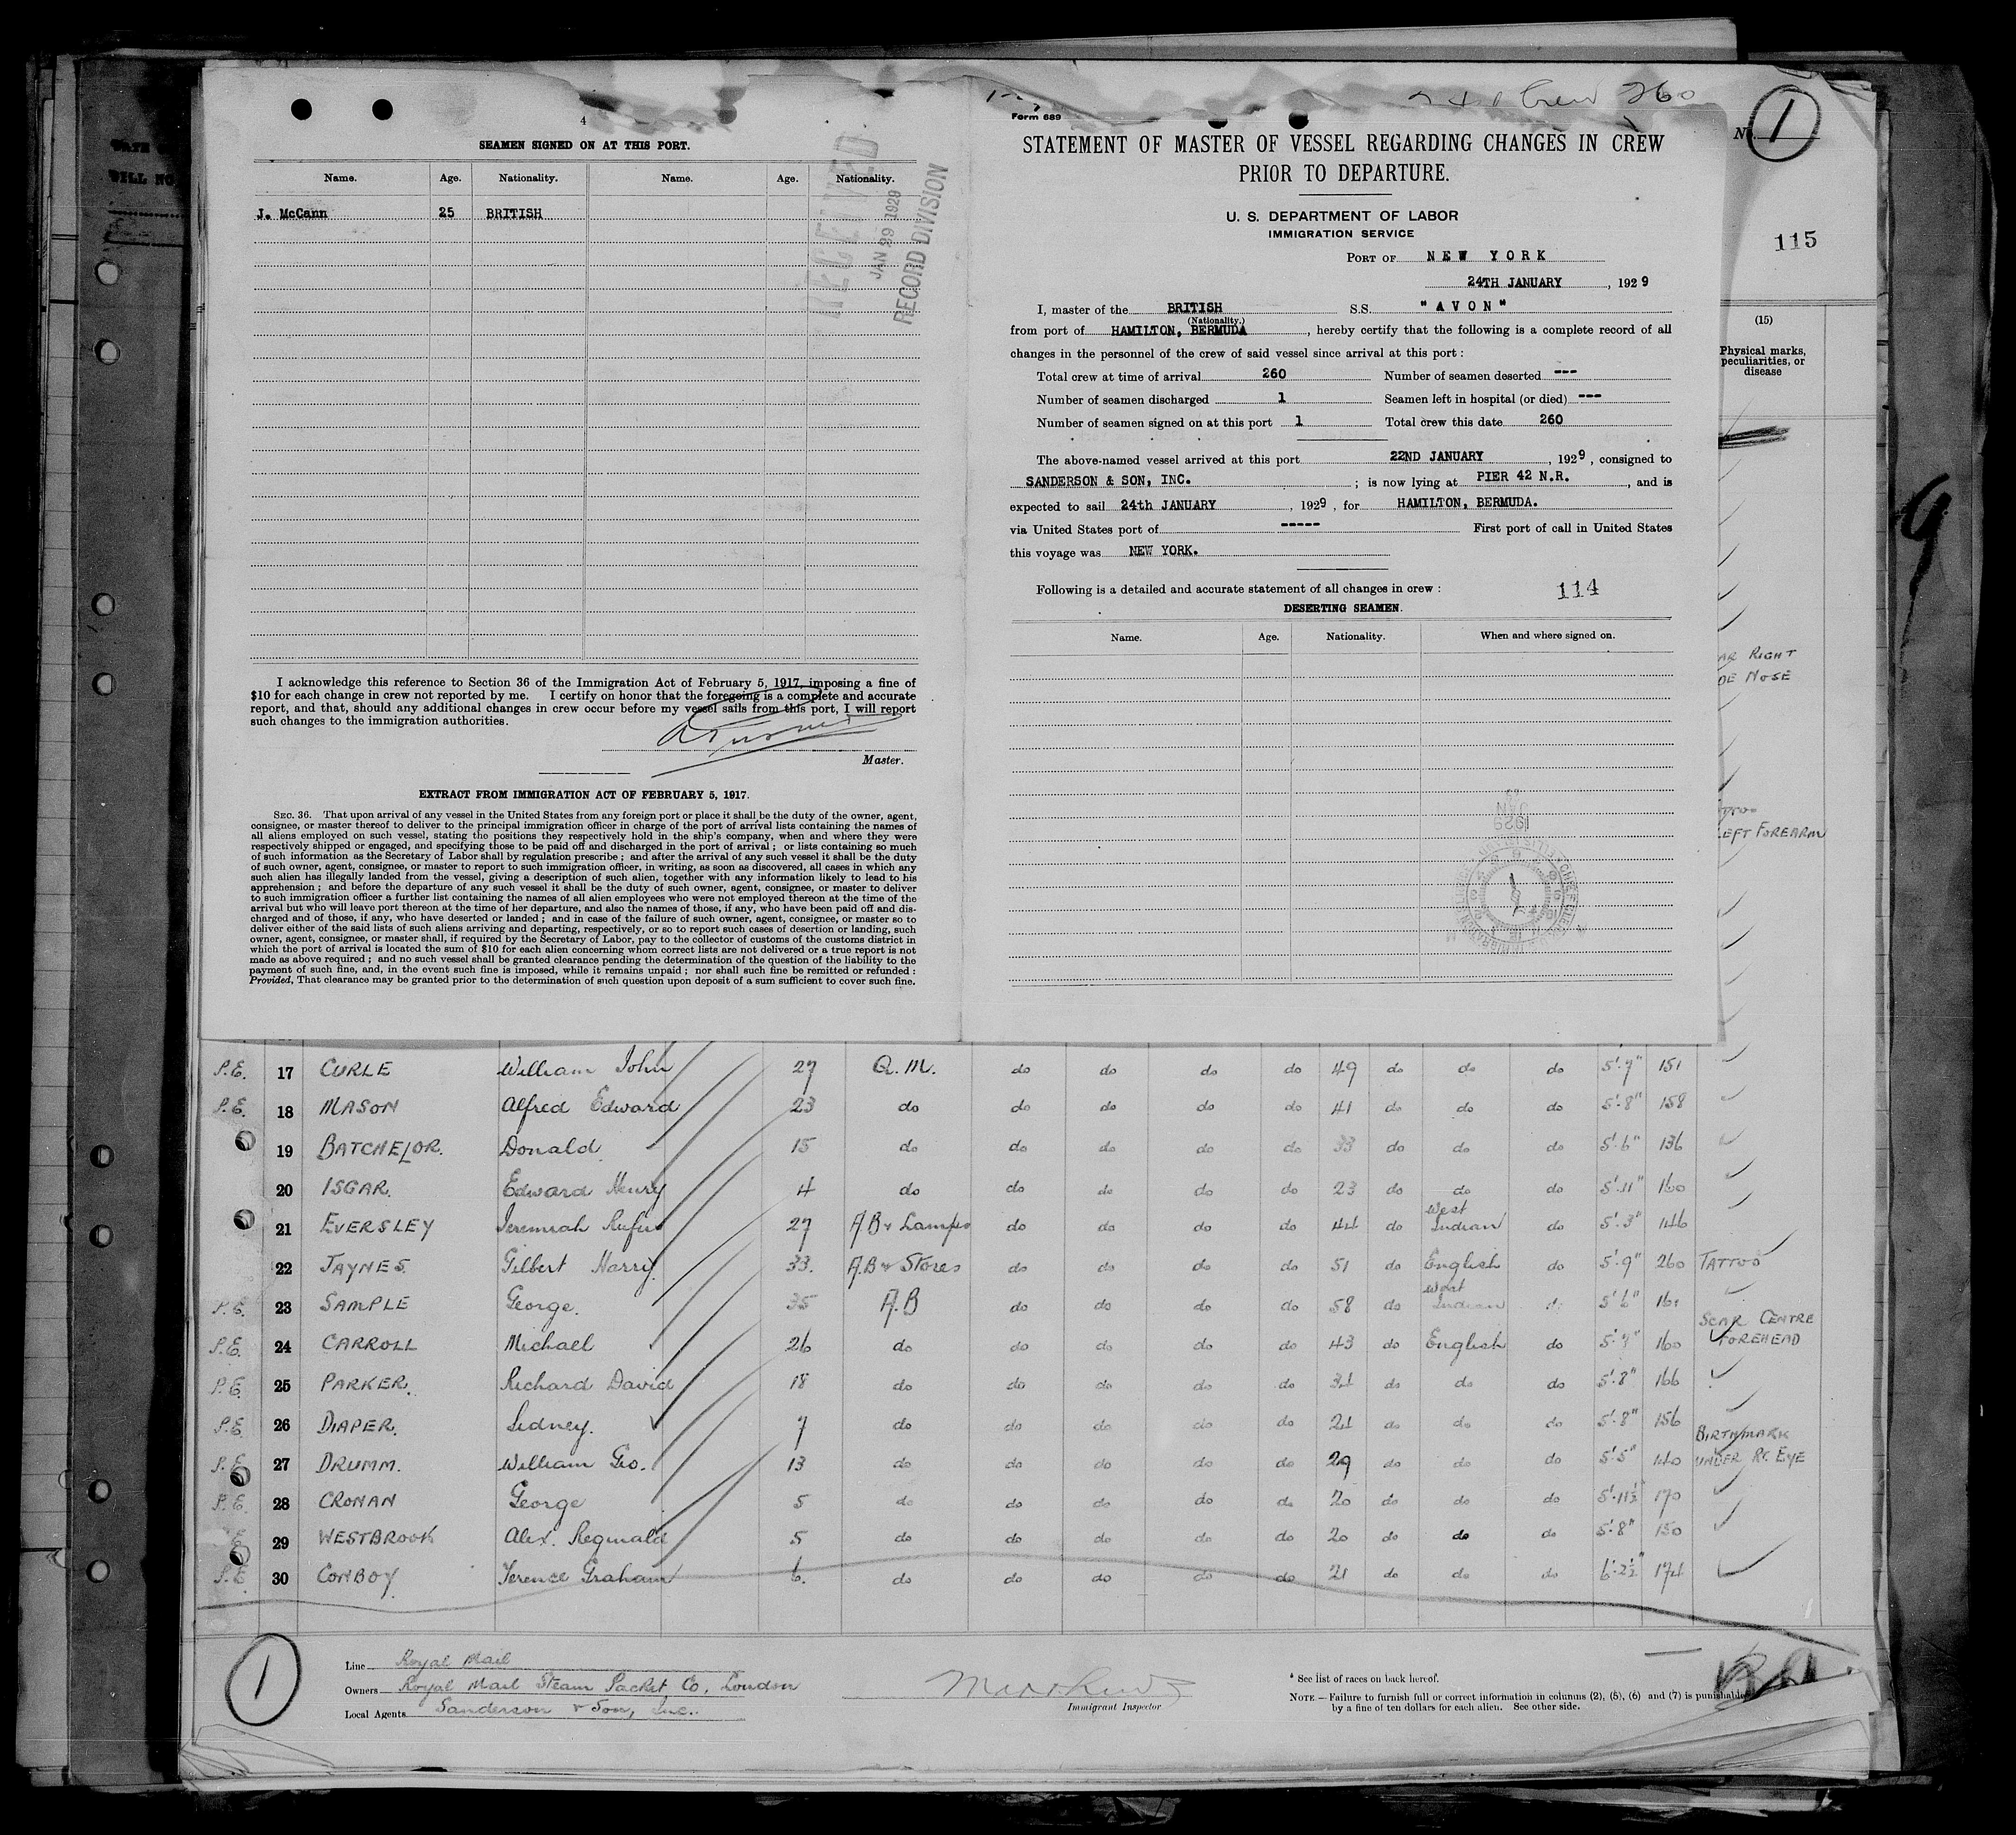 4
SEAMEN SIGNED ON AT THIS PORT.
Name. Age. Nationality. Name. Age. Nationality.
J. McCann 25 BRITISH
RECEIVED
JAN 29 1929
RECORD DIVISION
I acknowledge this reference to Section 36 of the Immigration Act of February 5, 1917, imposing a fine of
$10 for each change in crew not reported by me. I certify on honor that the foregoing is a complete and accurate
report, and that, should any additional changes in crew occur before my vessel sails from this port, I will report
such changes to the immigration authorities.
Master.
EXTRACT FROM IMMIGRATION ACT OF FEBRUARY 5, 1917.
SEC. 36. That upon arrival of any vessel in the United States from any foreign port or place it shall be the duty of the owner, agent,
consignee, or master thereof to deliver to the principal immigration officer in charge of the port of arrival lists containing the names of
all aliens employed on such vessel, stating the positions they respectively hold in the ship's company, when and where they were
respectively shipped or engaged, and specifying those to be paid off and discharged in the port of arrival ; or lists containing so much
of such information as the Secretary of Labor shall by regulation prescribe ; and after the arrival of any such vessel it shall be the duty
of such owner, agent, consignee, or master to report to such immigration officer, in writing, as soon as discovered, all cases in which any
such alien has illegally landed from the vessel, giving a description of such alien, together with any information likely to lead to his
apprehension ; and before the departure of any such vessel it shall be the duty of such owner, agent, consignee, or master to deliver
to such immigration officer a further list containing the names of all alien employees who were not employed thereon at the time of the
arrival but who will leave port thereon at the time of her departure, and also the names of those, if any, who have been paid off and dis-
charged and of those, if any, who have deserted or landed ; and in case of the failure of such owner, agent, consignee, or master so to
deliver either of the said lists of such aliens arriving and departing, respectively, or so to report such cases of desertion or landing, such
owner, agent, consignee, or master shall, if required by the Secretary of Labor, pay to the collector of customs of the customs district in
which the port of arrival is located the sum of $10 for each alien concerning whom correct lists are not delivered or a true report is not
made as above required ; and no such vessel shall be granted clearance pending the determination of the question of the liability to the
payment of such fine, and, in the event such fine is imposed, while it remains unpaid ; nor shall such fine be remitted or refunded :
Provided, That clearance may be granted prior to the determination of such question upon deposit of a sum sufficient to cover such fine.
Crew 260
Form 689
STATEMENT OF MASTER OF VESSEL REGARDING CHANGES IN CREW
PRIOR TO DEPARTURE.
U. S. DEPARTMENT OF LABOR
IMMIGRATION SERVICE
PORT OF NEW YORK
24TH JANUARY , 1929
I, master of the BRITISH S.S. "AVON"
(Nationality.)
from port of HAMILTON, BERMUDA , hereby certify that the following is a complete record of all
changes in the personnel of the crew of said vessel since arrival at this port :
Total crew at time of arrival 260 Number of seamen deserted ---
Number of seamen discharged 1 Seamen left in hospital (or died) ---
Number of seamen signed on at this port 1 Total crew this date 260
The above-named vessel arrived at this port 22ND JANUARY , 1929 , consigned to
SANDERSON & SON, INC. ; is now lying at PIER 42 N.R. , and is
expected to sail 24th JANUARY , 1929 , for HAMILTON, BERMUDA.
via United States port of ----- First port of call in United States
this voyage was NEW YORK.
Following is a detailed and accurate statement of all changes in crew : 114
DESERTING SEAMEN.
Name. Age. Nationality. When and where signed on.
JAN
1929
No. 1
115
(15)
Physical marks,
peculiarities, or
disease
RIGHT
NOSE
LEFT FOREARM
9
P.E. 17 CURLE William John 27 Q.M. do do do do 49 do do do 5'.7" 151
P.E. 18 MASON Alfred Edward 23 do do do do do 41 do do do 5'.8" 158
19 BATCHELOR. Donald 15 do do do do do 33 do do do 5'.6" 136
20 ISGAR. Edward Henry 4 do do do do do 23 do do do 5'.11" 160
21 EVERSLEY Jeremiah Rufus 27 A.B & Lamps do do do do 44 do West Indian do 5'.3" 146
22 JAYNES Gilbert Harry 33. A.B & Stores do do do do 51 do English do 5'.9" 260 TATTOO
P.E. 23 SAMPLE George. 35 A.B do do do do 58 do West Indian do 5'.6"
P.E. 24 CARROLL Michael 26 do do do do do 43 do English do 5'.7" 160 SCAR CENTRE FOREHEAD
P.E. 25 PARKER. Richard David 18 do do do do do 34 do do do 5'.8" 166
P.E. 26 DIAPER. Sidney. 7 do do do do do 24 do do do 5'.8" 156
P.E. 27 DRUMM. William Geo. 13 do do do do do 29 do do do 5'.5" 140 BIRTHMARK UNDER RT. EYE
P.E. 28 CRONAN George 5 do do do do do 20 do do do 5'.11½" 170
29 WESTBROOK Alex. Reginald 5 do do do do do 20 do do do 5'.8" 150
P.E. 30 CONBOY Terence Graham 6. do do do do do 21 do do do 6'.2½" 174
1
Line Royal Mail
Owners Royal Mail Steam Packet Co. London
Local Agents Sanderson & Son, Inc.
Immigrant Inspector
* See list of races on back hereof.
NOTE — Failure to furnish full or correct information in columns (2), (5), (6) and (7) is punishable
by a fine of ten dollars for each alien. See other side.